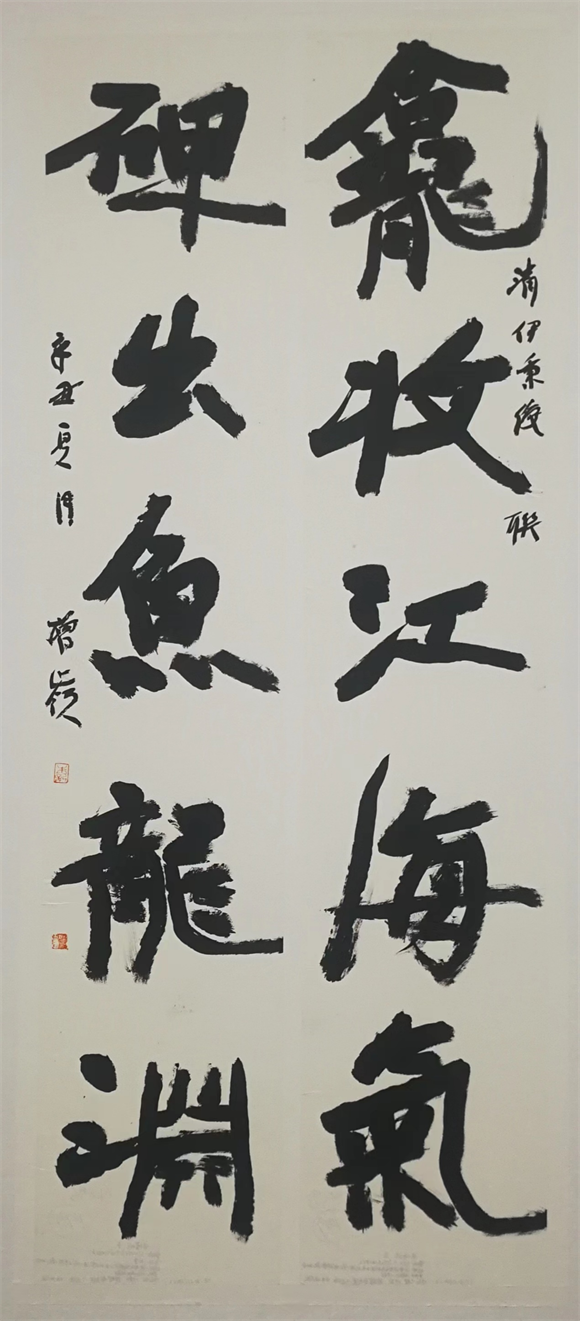 龕收江海氣
清伊秉綬聯
碑出魚龍淵
辛丑夏